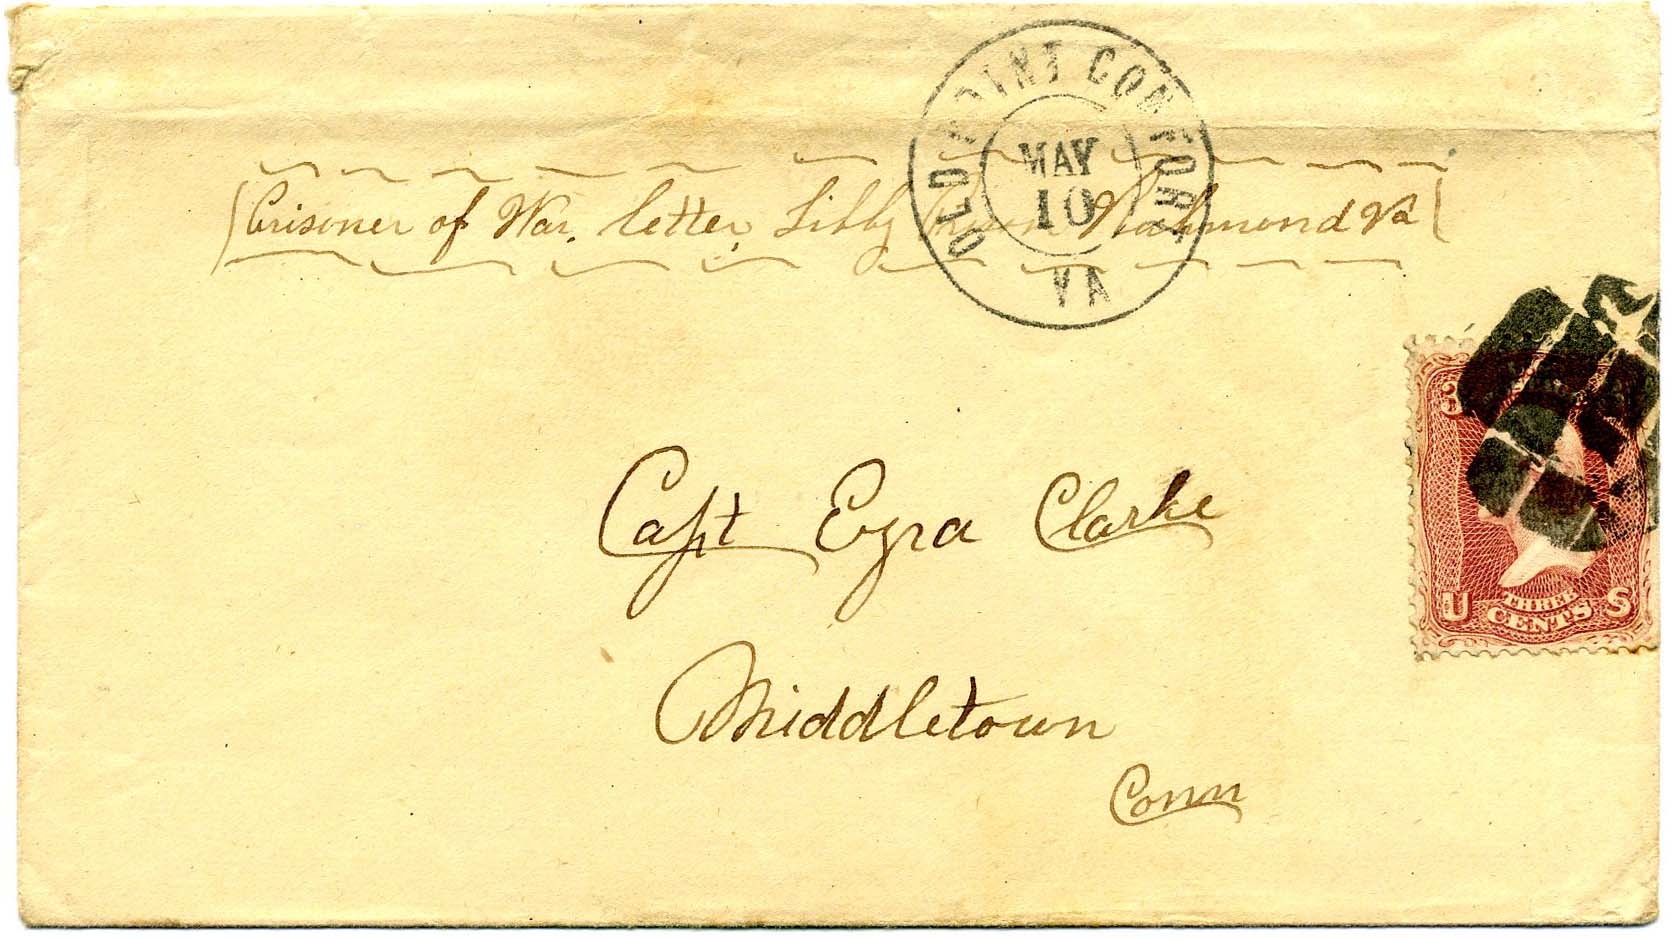 OLD POINT COMFORT
MAY
10
VA
Prisoner of War. letter, Libby Prison Richmond Va
3
Capt Ezra Clarke
Middletown
Conn
U THREE CENTS S